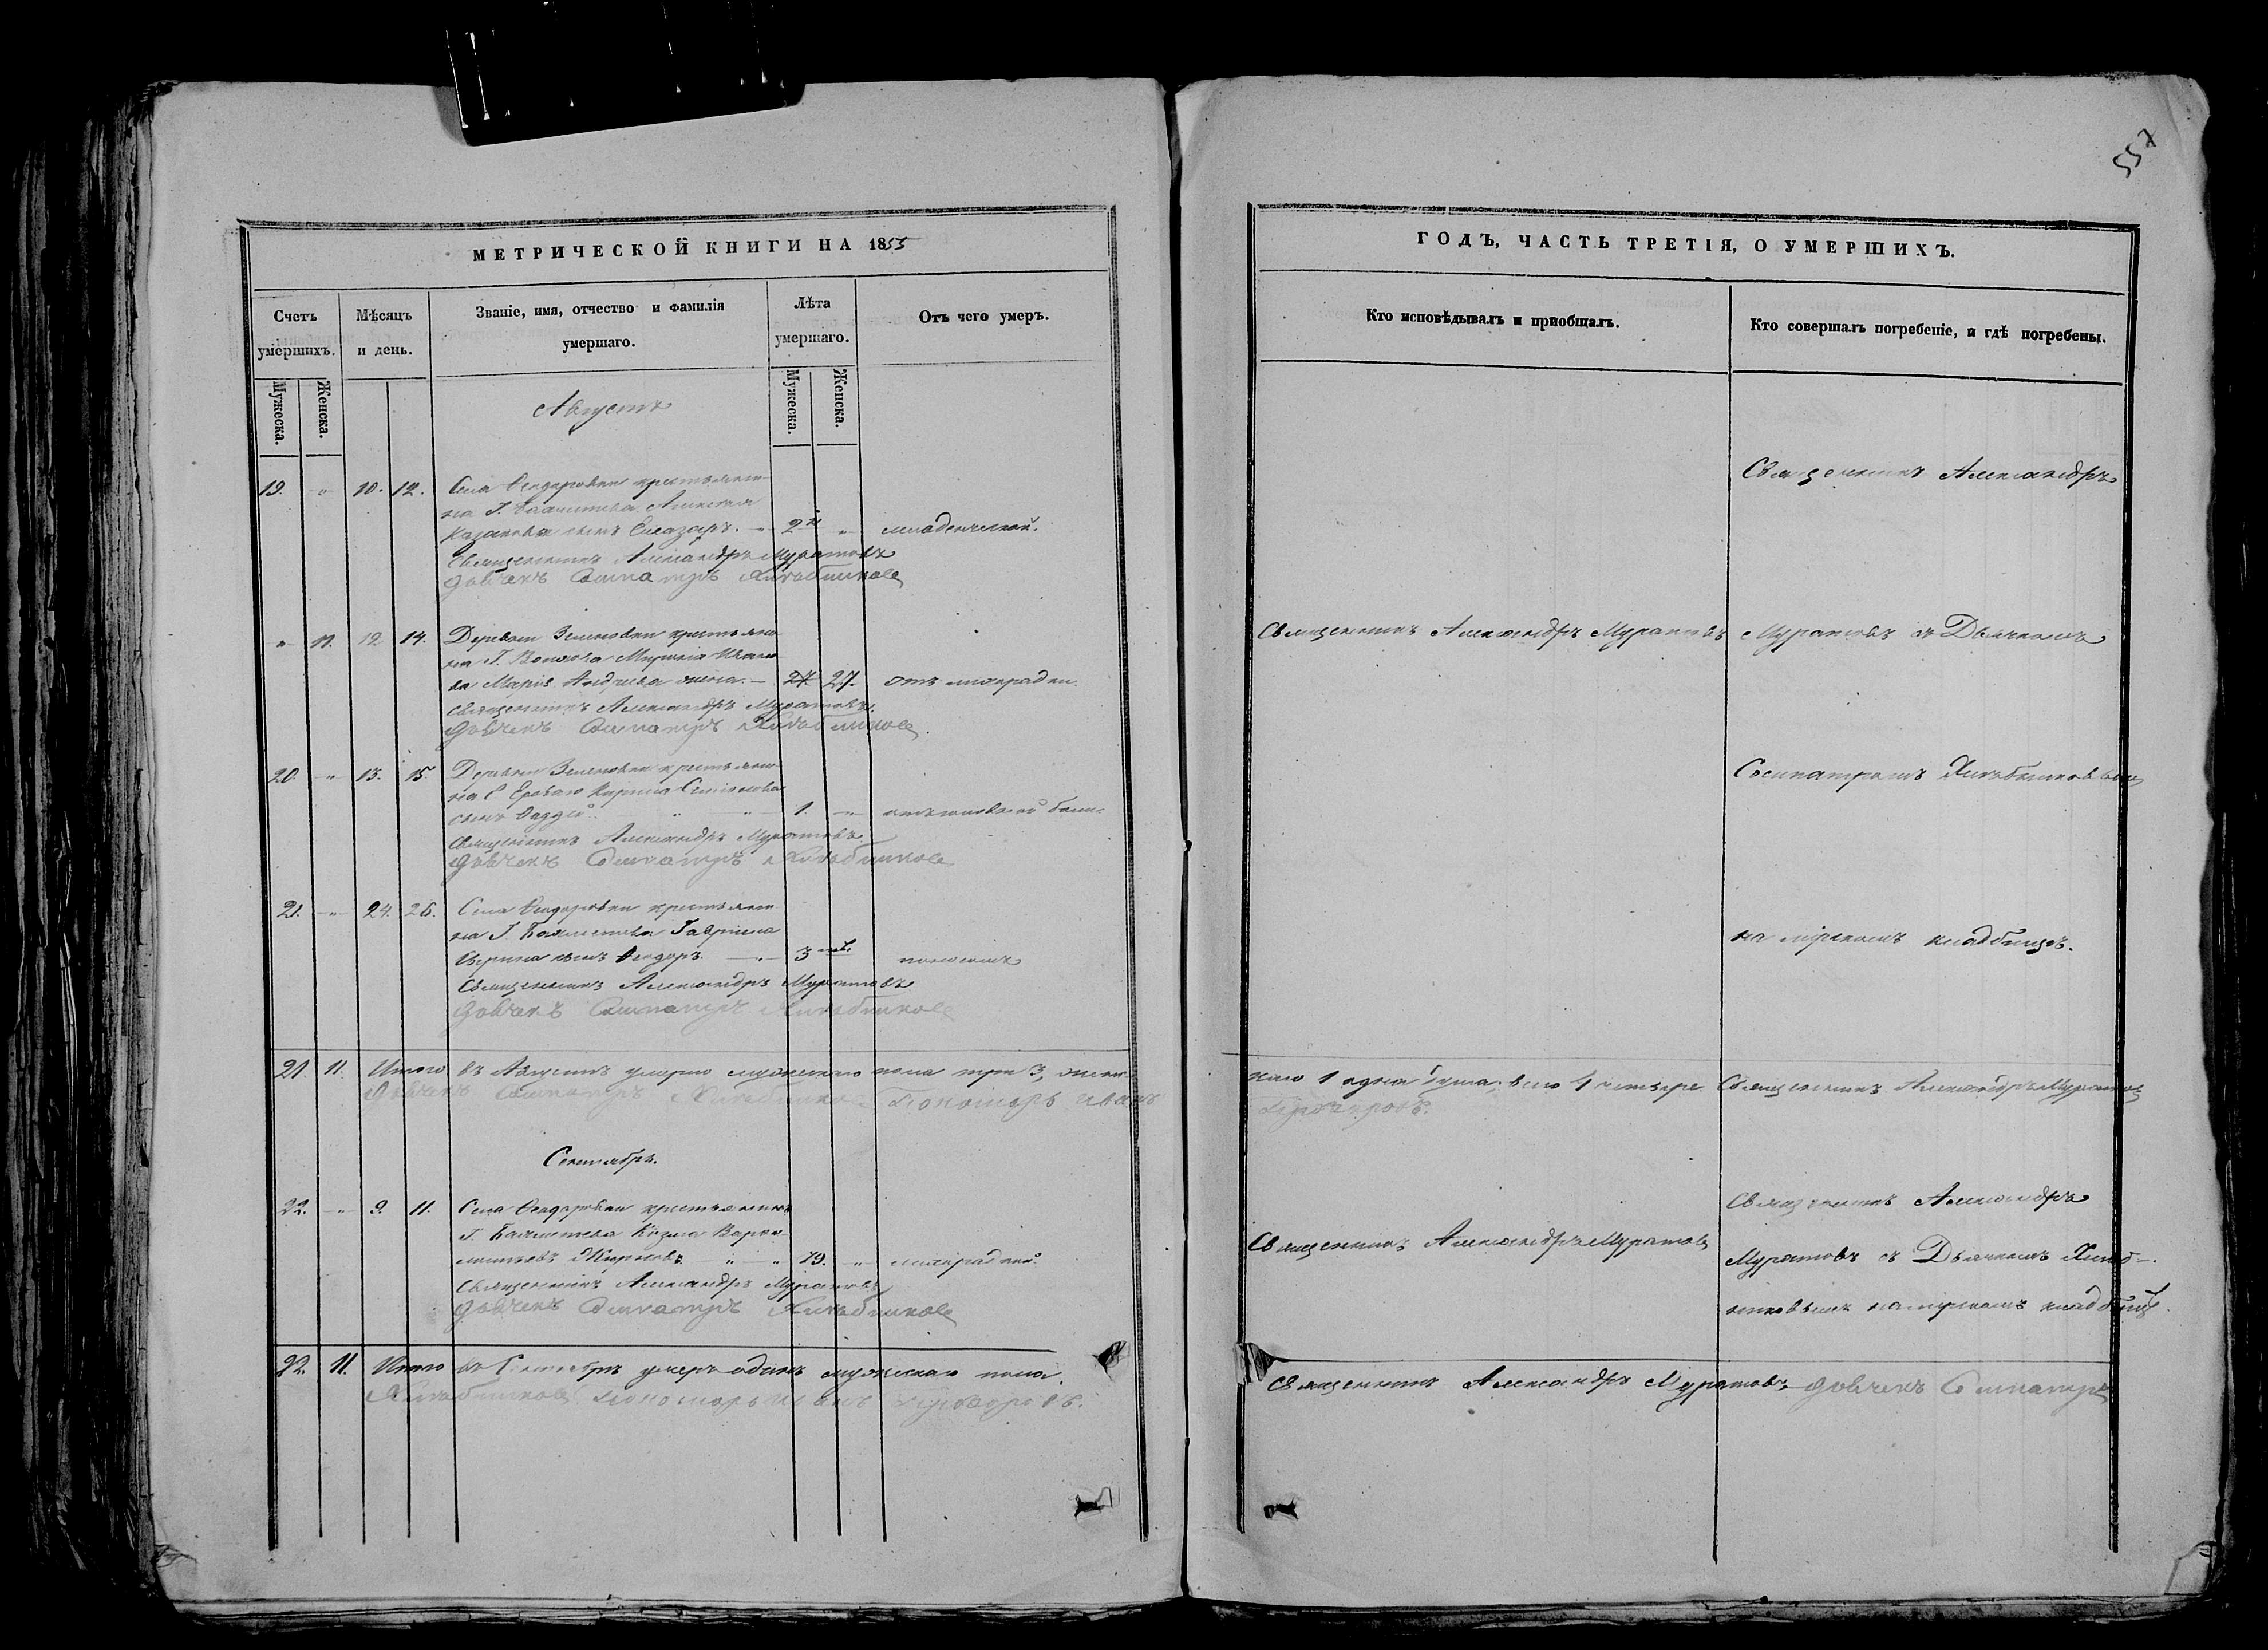 557
МЕТРИЧЕСКОЙ КНИГИ НА 1853
ГОДЪ, ЧАСТЬ ТРЕТІЯ, О УМЕРШИХЪ.
Счетъ умершихъ.
Мѣсяцъ и день.
Званіе, имя, отчество и фамилія умершаго.
Лѣта умершаго.
Отъ чего умеръ.
Кто исповѣдывалъ и пріобщалъ.
Кто совершалъ погребеніе, и гдѣ погребены.
Мужеска.
Женска.
Мужеска.
Женска.
Августъ
19. " 10. 12. Села Ѳедоровки крестьяни-
на Г. Бахметева Алексѣя
Казакова сынъ Елеазаръ. 2 " младенческой.
Священникъ Александръ Муратовъ
Дьячекъ Сосипатръ Хлѣбниковъ
Священникъ Александръ
" 11. 12 14. Деревни Зеленовки крестьяни-
на Г. Мирона Ивано-
ва Марія Андреева жена. 27 27. отъ лихорадки.
Священникъ Александръ Муратовъ.
Дьячекъ Сосипатръ Хлѣбниковъ.
Священникъ Александръ Муратовъ
Муратовъ съ Дьячкомъ
20. " 13. 15. Деревни Зеленовки крестьяни-
на Кирила Семенова
сынъ Фаддей 1. "
Священникъ Александръ Муратовъ
Дьячекъ Сосипатръ Хлѣбниковъ
Сосипатромъ Хлѣбниковымъ
21. " 24. 26. Села Ѳедоровки крестьяни-
на Г. Бахметева Гавриила
сынъ Ѳедоръ 3 нед. поносомъ
Священникъ Александръ Муратовъ
Дьячекъ Сосипатръ Хлѣбниковъ
на мірскомъ кладбищѣ.
21. 11. Итого въ Августѣ умерло мужескаго пола три 3, жен-
скаго 1 одна всего 4 четыре. Священникъ Александръ Муратовъ
Дьячекъ Сосипатръ Хлѣбниковъ Пономарь Иванъ
Сентябрь.
22. " 9. 11. Села Ѳедоровки крестьянинъ
Г. Бахметева Козма Варѳо-
ломеевъ 79. " лихорадкой
Священникъ Александръ Муратовъ
Дьячекъ Сосипатръ Хлѣбниковъ
Священникъ Александръ Муратовъ
Священникъ Александръ
Муратовъ съ Дьячкомъ Хлѣб-
никовымъ на мірскомъ кладбищѣ.
22. 11. Итого въ Сентябрѣ умеръ одинъ мужескаго пола.
Священникъ Александръ Муратовъ Дьячекъ Сосипатръ
Хлѣбниковъ Пономарь Иванъ